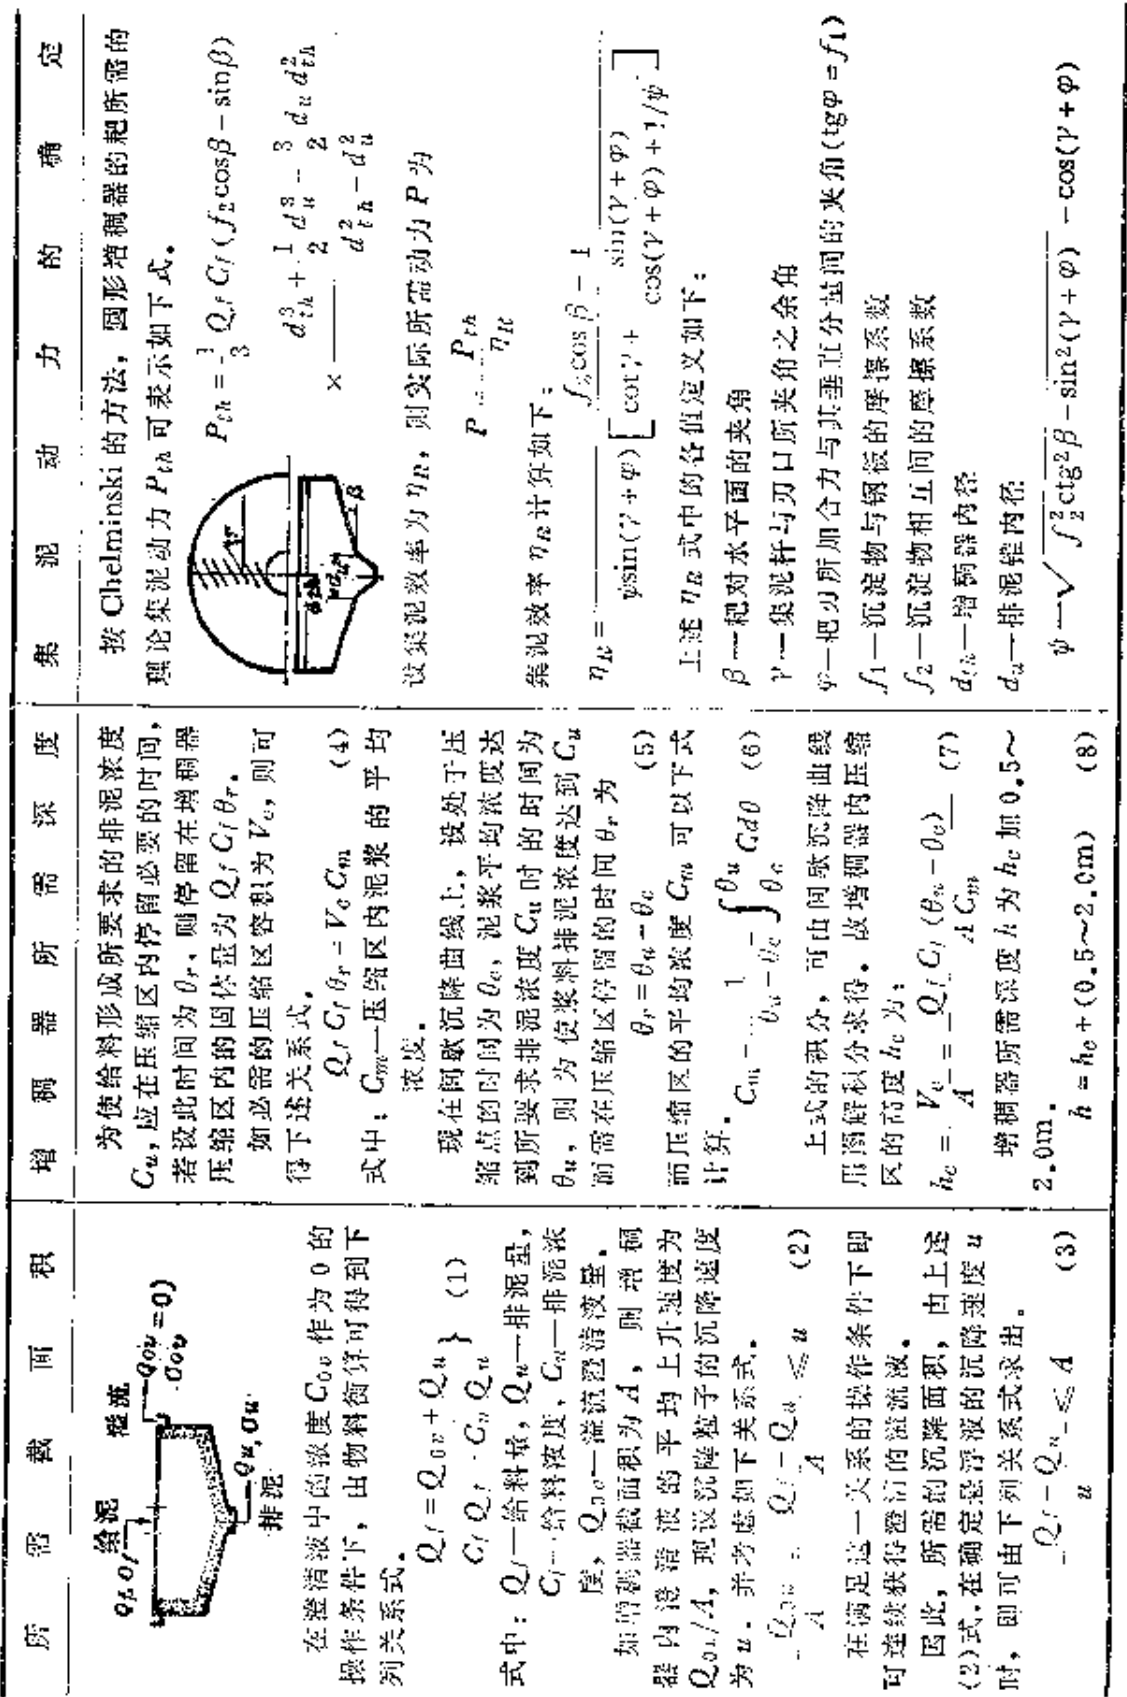 所需截面积
给泥
溢流
Qf, Cf
Qov
Cov (=0)
Qu, Cu
排泥
在澄清液中的浓度 C₀ᵥ 作为 0 的
操作条件下，由物料衡算可得到下
列关系式。
Q_f = Q_{0v} + Q_u
C_f Q_f · C_u Q_u } (1)
式中：Q_f—给料量，Q_u—排泥量，
C_f—给料浓度，C_u—排泥浓
度，Q_{0v}—溢流澄清液量。
如增稠器截面积为 A，则增稠
器内澄清液的平均上升速度为
Q_{0v}/A，现设沉降粒子的沉降速度
为 u，并考虑如下关系式。
Q_{0v}/A = (Q_f − Q_u)/A ≤ u (2)
在满足这一关系的操作条件下即
可连续获得澄清的溢流液。
因此，所需的沉降面积，由上述
(2)式，在确定悬浮液的沉降速度 u
时，即可由下列关系式求出。
(Q_f − Q_u)/u ≤ A (3)
增稠器所需深度
为使给料形成所要求的排泥浓度
C_u，应在压缩区内停留必要的时间，
若设此时间为 θ_r，则停留在增稠器
压缩区内的固体量为 Q_f C_f θ_r。
如必需的压缩区容积为 V_c，则可
得下述关系式。
Q_f C_f θ_r = V_c C_m (4)
式中：C_m—压缩区内泥浆的平均
浓度。
现在间歇沉降曲线上，设处于压
缩点的时间为 θ_c，泥浆平均浓度达
到所要求排泥浓度 C_u 时的时间为
θ_u，则为使浆料排泥浓度达到 C_u
而需在压缩区停留的时间 θ_r 为
θ_r = θ_u − θ_c (5)
而压缩区的平均浓度 C_m 可以下式
计算。
C_m = 1/(θ_u − θ_c) ∫_{θ_c}^{θ_u} C dθ (6)
上式的积分，可由间歇沉降曲线
用图解积分求得。故增稠器内压缩
区的高度 h_c 为：
h_c = V_c/A = Q_f C_f (θ_u − θ_c)/(A C_m) (7)
增稠器所需深度 h 为 h_c 加 0.5～
2.0m。
h = h_c + (0.5～2.0m) (8)
集泥动力的确定
按 Chelminski 的方法，圆形增稠器的耙所需的
理论集泥动力 P_{th} 可表示如下式。
P_{th} = 1/3 Q_f C_f (f_2 cosβ − sinβ)
× (d_{th}^3 + 1/2 d_u^3 − 3/2 d_u d_{th}^2)/(d_{th}^2 − d_u^2)
β
设集泥效率为 η_R，则实际所需动力 P 为
P = P_{th}/η_R
集泥效率 η_R 计算如下：
η_R = (f_2 cos β − 1)/(ψ sin(γ + φ) [cot γ + sin(γ + φ)/(cos(γ + φ) + 1/ψ)])
上述 η_R 式中的各值定义如下：
β—耙对水平面的夹角
γ—集泥杆与刃口所夹角之余角
φ—耙刃所加合力与其垂直分量间的夹角(tgφ = f_1)
f_1—沉淀物与钢板的摩擦系数
f_2—沉淀物相互间的摩擦系数
d_{th}—增稠器内径
d_u—排泥锥内径
ψ—√(f_2^2 ctg²β − sin²(γ + φ)) − cos(γ + φ)